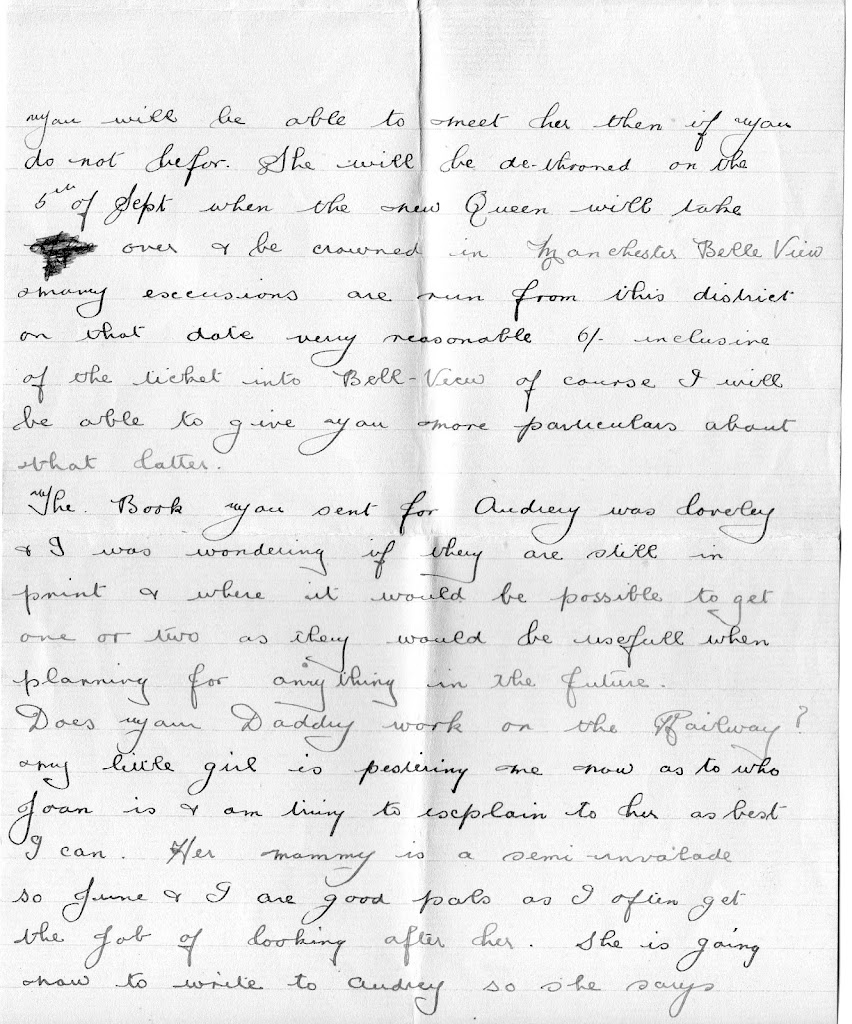 you will be able to meet her then if you
do not befor. She will be de-throned on the
5th of Sept when the new Queen will take
over & be crowned in Manchester Belle View
many excusions are run from this district
on that date very reasonable 6/- inclusive
of the ticket into Bell-View of course I will
be able to give you more particulars about
that latter.
The Book you sent for Audrey was loveley
& I was wondering if they are still in
print & where it would be possible to get
one or two as they would be usefull when
planning for anything in the future.
Does your Daddy work on the Railway?
my little girl is pestering me now as to who
Joan is & am triing to explain to her as best
I can. Her mammy is a semi-invalade
so June & I are good pals as I often get
the job of looking after her. She is going
now to write to Audrey so she says